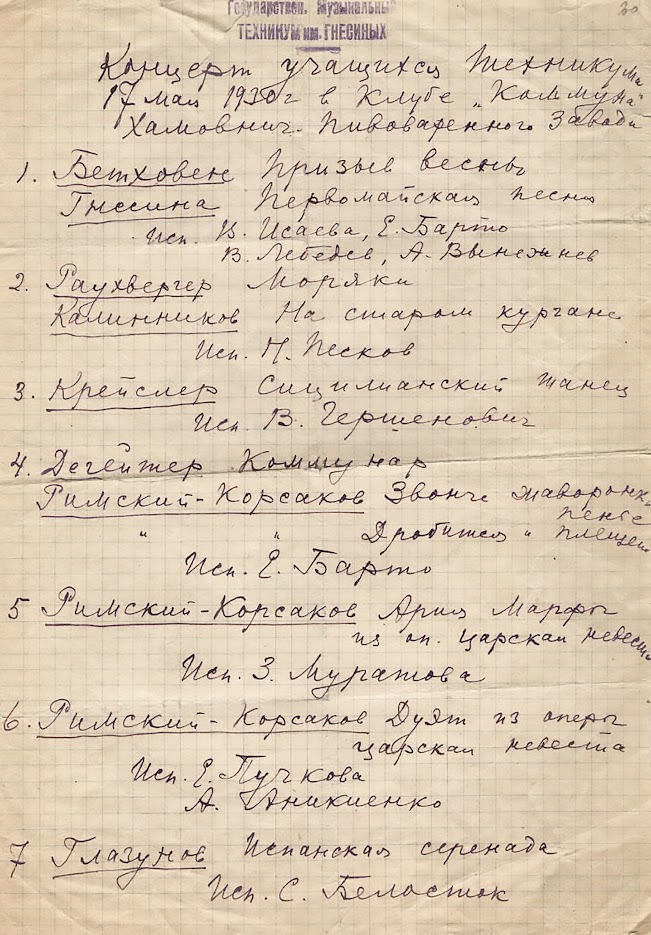 30
Государствен. Музыкальный
ТЕХНИКУМ им. ГНЕСИНЫХ
Концерт учащихся Техникума
17 мая 1930 г в Клубе „Коммуна"
Хамовнич. Пивоваренного Завода
1. Бетховен Призыв весны
Гнесина Первомайская песня
Исп. В. Исаева, Е. Барто
В. Лебедев, А.
2. Раухвергер Моряки
Калинников На старом кургане
Исп. П. Песков
3. Крейслер Сицилианский танец
Исп. В. Гершенович
4. Дегейтер Коммунар
Римский-Корсаков Звонче жаворонка
пенье
" " Дробится и плещет
Исп. Е. Барто
5 Римский-Корсаков Ария Марфы
из оп. Царская невеста
Исп. З. Муратова
6. Римский-Корсаков Дуэт из оперы
Царская невеста
Исп. Е. Пучкова
А. Аникиенко
7 Глазунов Испанская серенада
Исп. С. Белосток